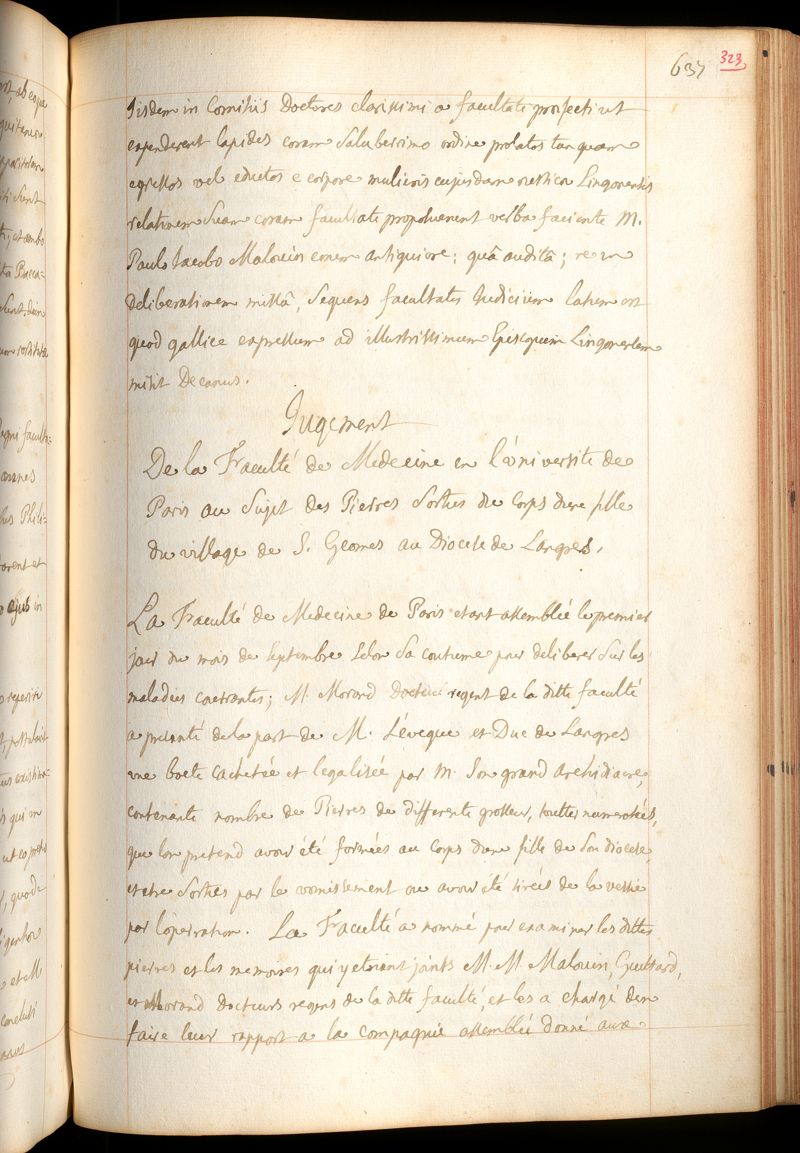 637 323
Iisdem in Comitiis Doctores clarissimi a facultate profecti ut
expenderent lapides coram Saluberrimo ordine prolatos tanquam
egestos vel eductos e corpore mulieris cujusdam rusticæ Lingonensis
relationem Suam coram facultate proposuerunt verba faciente M.
Paulo Jacobo Malouin eorum antiquiore; quâ auditâ; re in
deliberationem missâ, Sequens facultatis Judicium latum est
quod gallice expressum ad illustrissimum Episcopum Lingonensem
misit Decanus.
Jugement
De la Faculté de Medecine en l'université de
Paris au Sujet des Pierres Sorties du Corps d'une fille
du village de S. Geomes au Diocese de Langres.
La Faculté de Medecine de Paris etant assemblée le premier
jour du mois de Septembre Selon Sa coutume pour deliberer Sur les
maladies courrantes; M. Morand Docteur regent de la ditte faculté
a presenté de la part de M. L'éveque et Duc de Langres
une boete cachetée et legalisée par M. Son grand Archidiacre,
contenante nombre de Pierres de differente grosseur, touttes numerotées,
que l'on pretend avoir été formées au Corps d'une fille de Son diocese,
et etre Sorties par le vomissement ou avoir été tirées de la vessie
par l'operation. La Faculté a nommé pour examiner les dittes
pierres et les memoires qui y etoient joints M. M. Malouin, Guettard,
et Morand docteurs regens de la ditte faculté, et les a chargé d'en
faire leur rapport a la compagnie assemblée donné aux